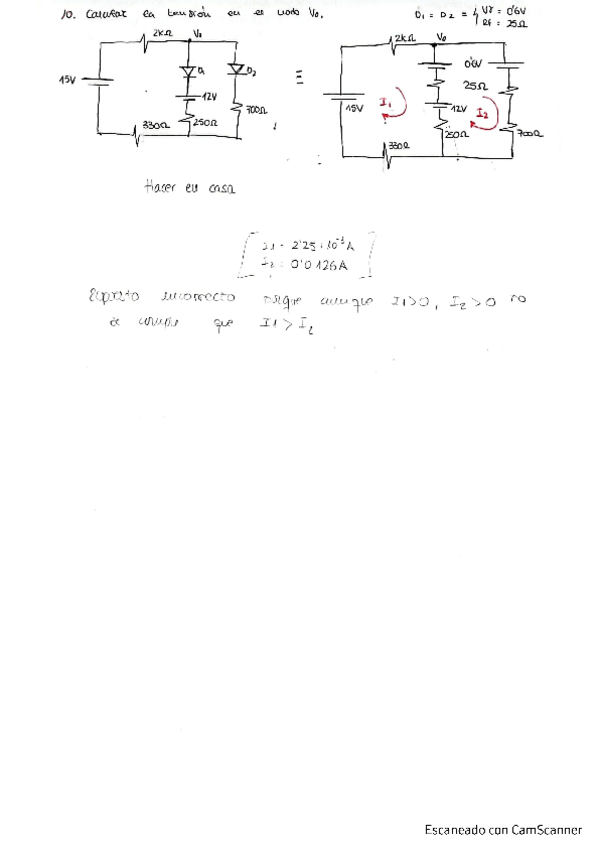 10. Calcular la tensión en el nodo V₀.
D₁ = D₂ = { Vγ = 0'6V
Rf = 25Ω
2kΩ V₀
15V D₁ D₂
12V
250Ω 700Ω
330Ω
≡
2kΩ V₀
0'6V
25Ω
15V I₁ 12V I₂
250Ω 700Ω
330Ω
Hacer en casa
I1 = 2'25·10⁻³A
I₂ = 0'0126A
incorrecto aunque I1>0, I₂>0 no
se cumple que I1 > I₂
Escaneado con CamScanner